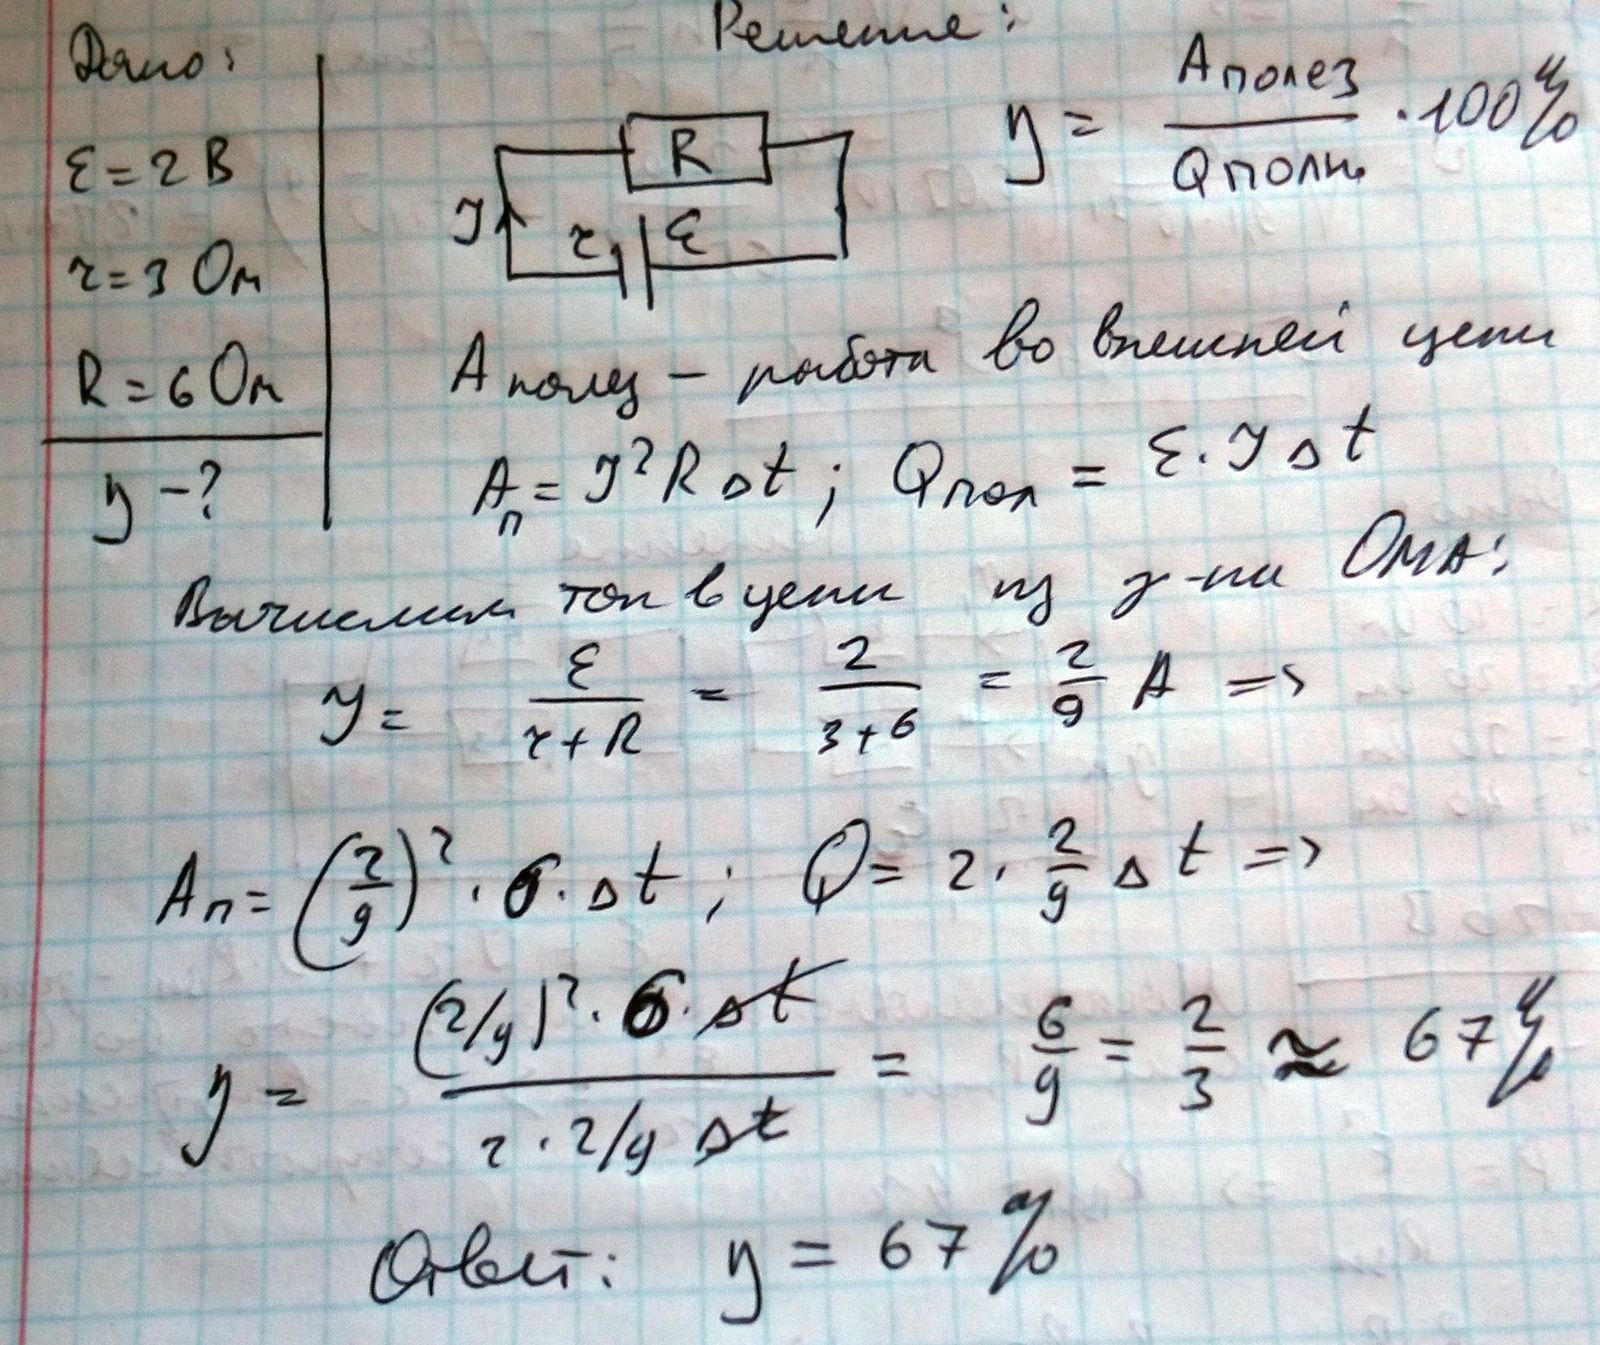 Дано:
ε = 2 В
r = 3 Ом
R = 6 Ом
η - ?
Решение:
R
I
r ε
η = Aполез / Qполн. · 100%
Aполез – работа во внешней цепи
Aп = I²RΔt ; Qпол = ε·IΔt
Вычислим ток в цепи из з-на ОМА:
I = ε/(r+R) = 2/(3+6) = 2/9 А =>
Aп = (2/9)² · 6 · Δt ; Q = 2 · 2/9 Δt =>
η = (2/9)² · 6 · Δt / 2 · 2/9 Δt = 6/9 = 2/3 ≈ 67%
Ответ: η = 67%